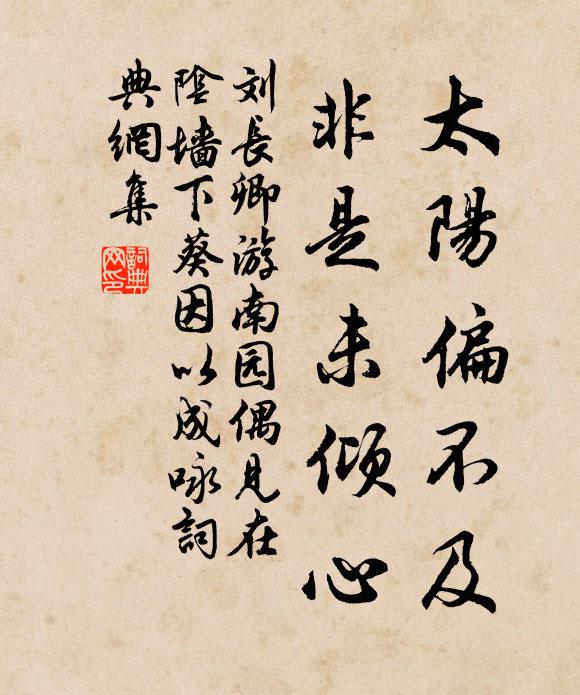 太陽偏不及
非是未傾心
刘長卿游南园偶見在
陰墙下葵因以成咏詞
典網集
詞典网印